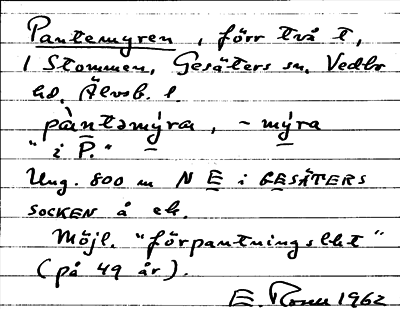 Pantemyren, förr två t,
i Stommen, Gesäters sn. Vedbo
hd. Älvsb. l.
pàntəmy̱ra, -my̱ra
"i P."
Ung. 800 m NE i GESÄTERS
SOCKEN å ek.
Möjl. "förpantningslht"
(på 49 år).
E. Rosell 1962